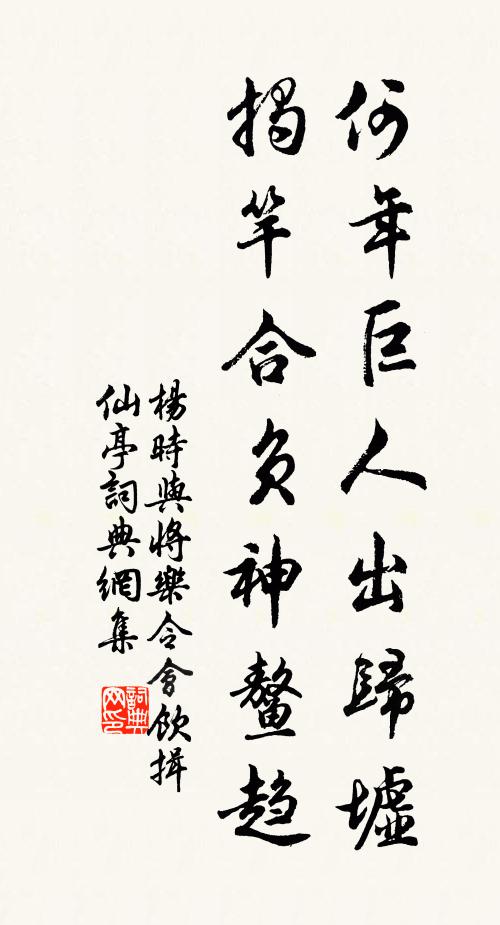 何年巨人出歸墟
揭竿合負神鼇趨
楊時與將樂令會飲揖
仙亭詞典網集
詞典网印